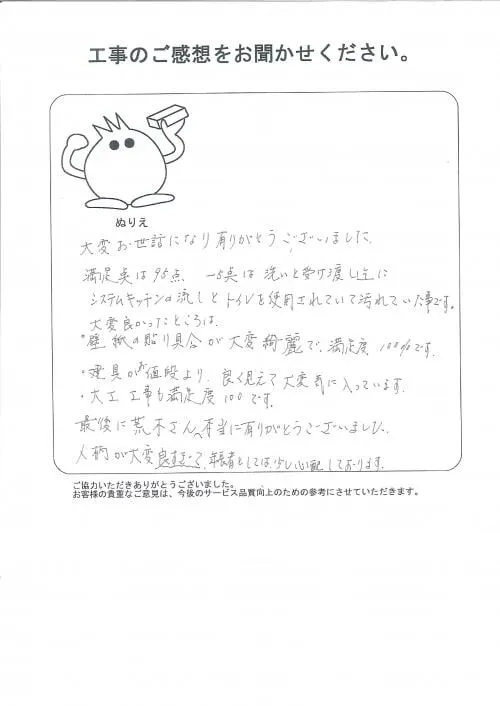 工事のご感想をお聞かせください。
ぬりえ
大変お世話になり有りがとうございました。
満足点は95点 -5点は 洗いと受け渡し に
システムキッチンの流しとトイレを使用されていて汚れていた事です。
大変良かったところは、
・壁紙の貼り具合が大変綺麗で、満足度100%です。
・建具がお値段より、良く見えて大変気に入っています。
・大工工事も満足度100です。
最後に荒木さんへ本当に有りがとうございました。
人柄が大変良すぎて、年長者としては少し心配しております。
ご協力いただきありがとうございました。
お客様の貴重なご意見は、今後のサービス品質向上のための参考にさせていただきます。